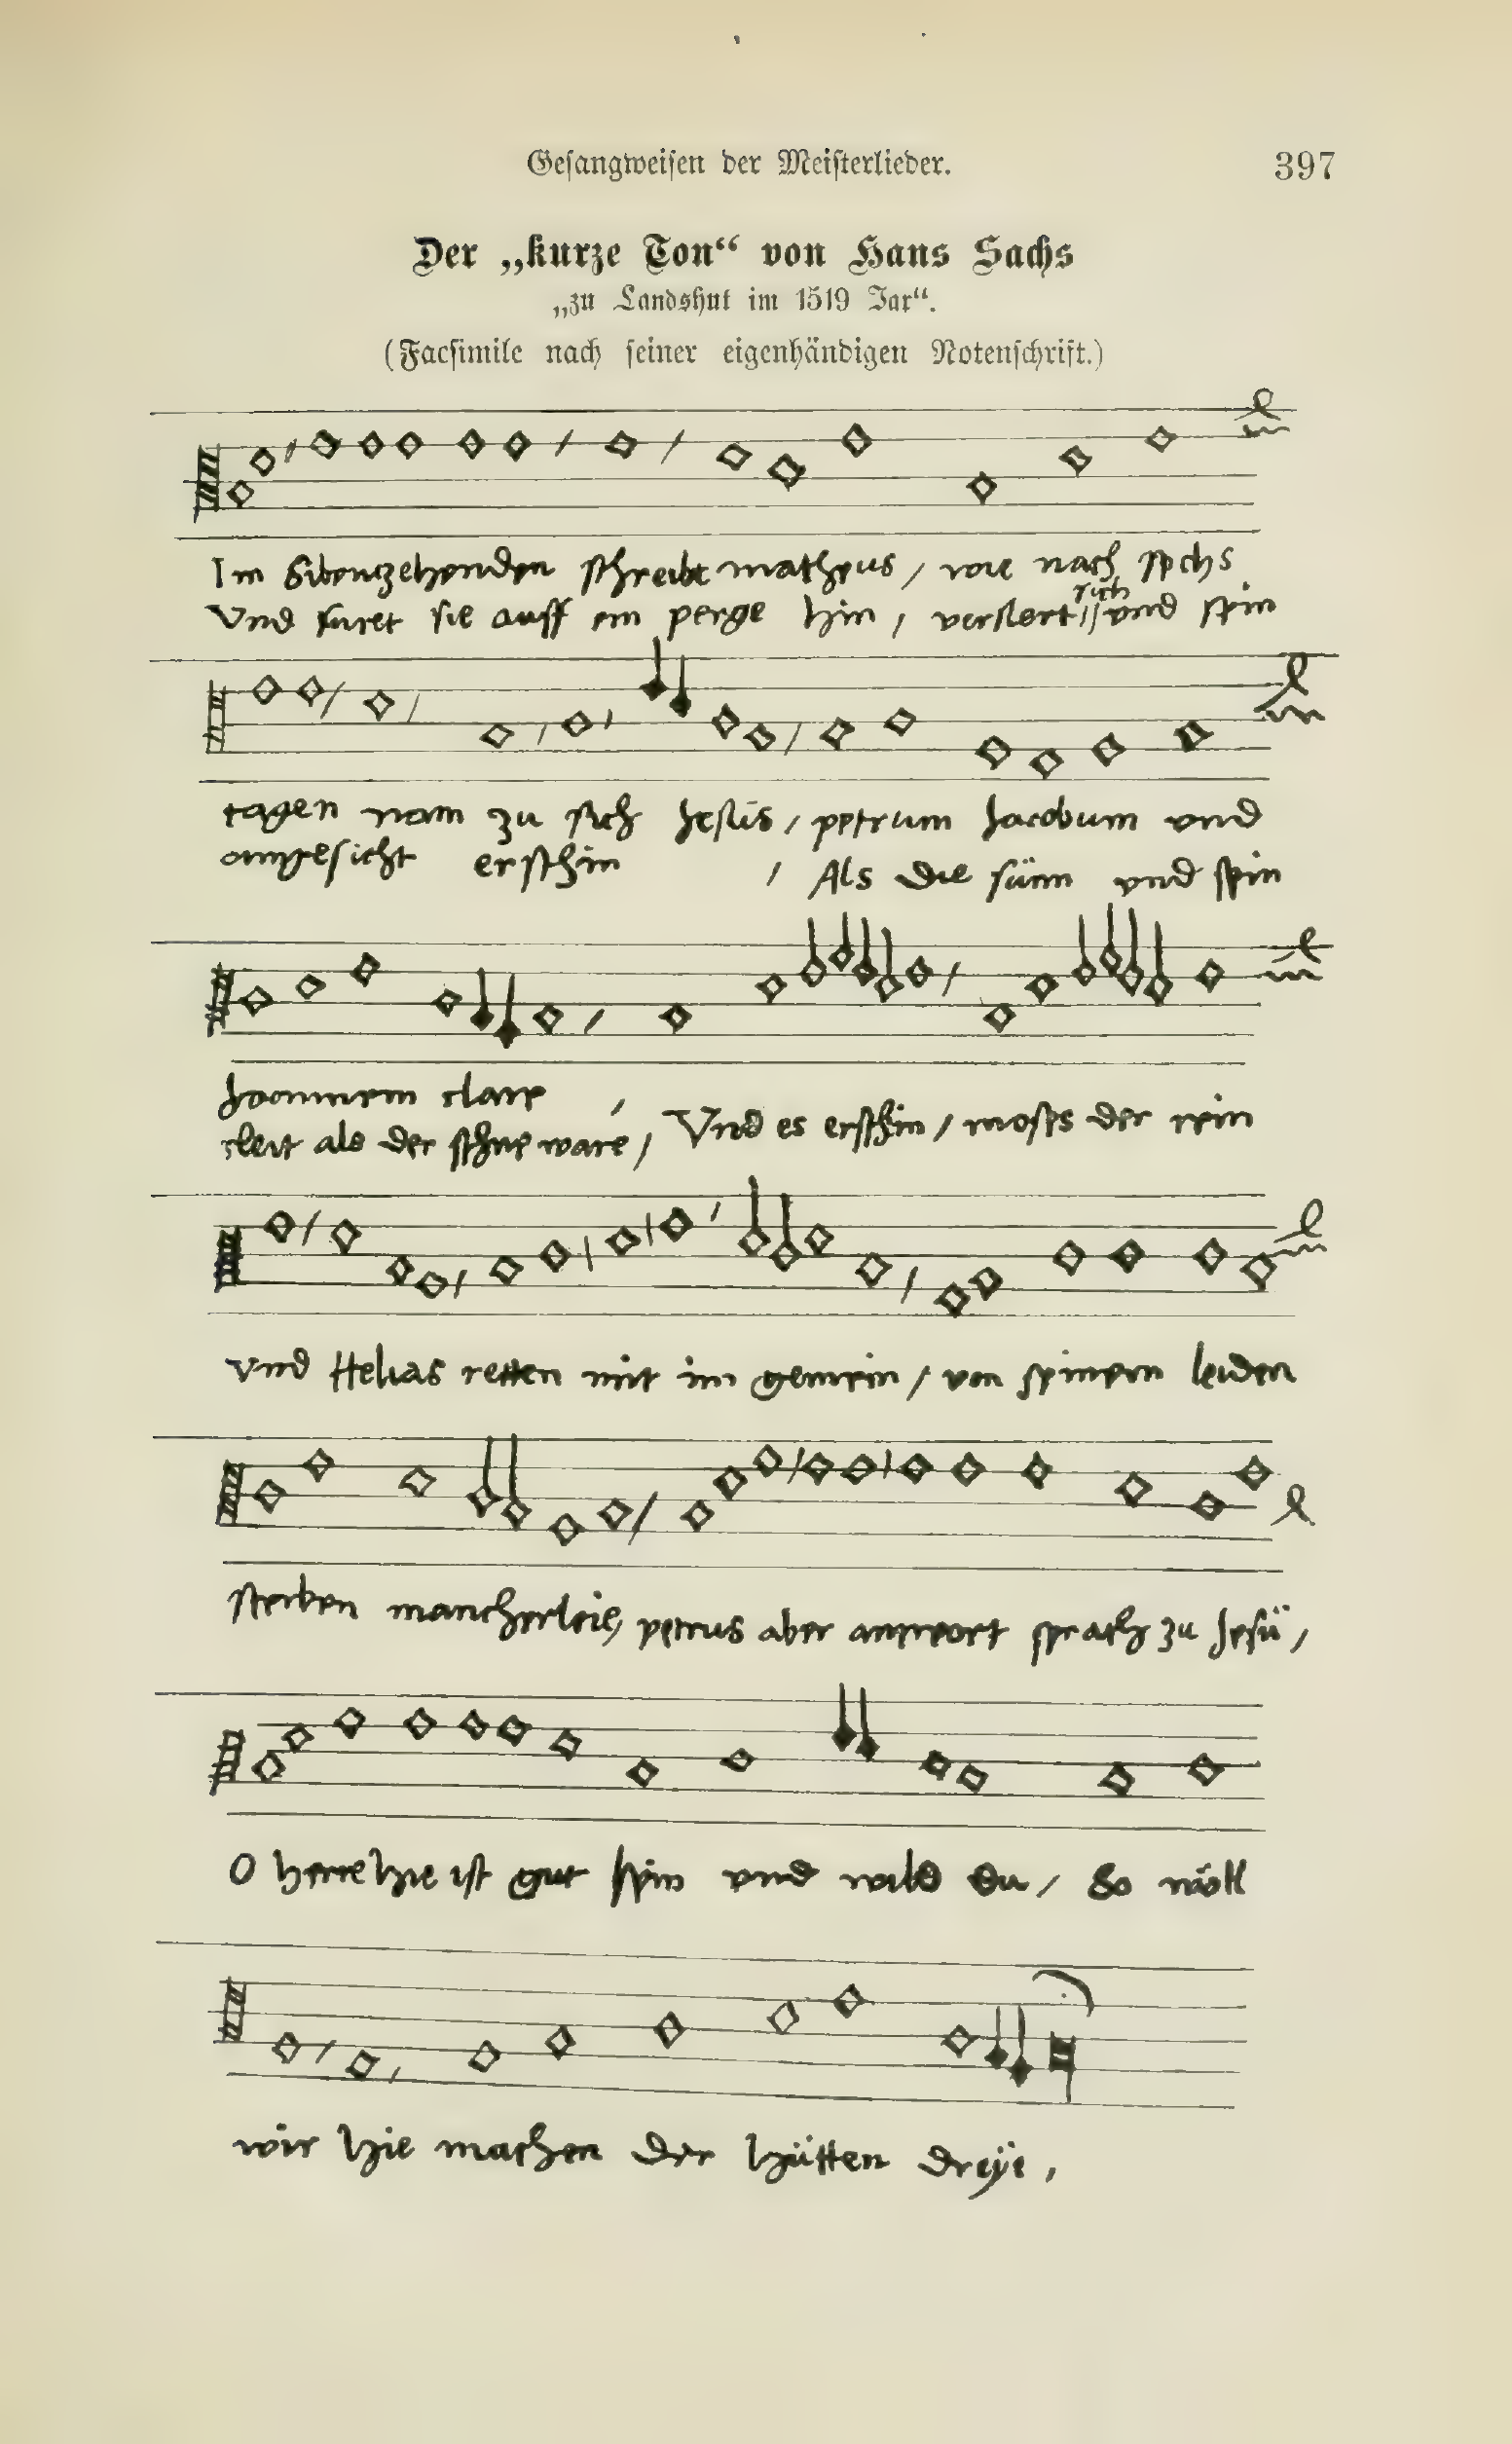 Gesangweisen der Meisterlieder.
397
Der „kurze Ton“ von Hans Sachs
„zu Landshut im 1519 Jar“.
(Facsimile nach seiner eigenhändigen Notenschrift.)
Im Sibenzehenden schreibt matheus / wie nach sechs
Vnd furet sie auff ein perge hin / verklert sich // vnd sein
tagen nam zu sich Jesus / petrum Jacobum vnd
angesicht erschin / Als die sünn vnd sein
Joannem clare /
cleit als der schne ware / Vnd es erschin / moses der rein
vnd Helias retten mit im gemein / von seinem leiden
sterben mancherleie / petrus aber antwort sprach zu Jesü /
O herre hie ist gut sein vnd wild du / So wöll
wir hie machen der hütten dreÿe ,